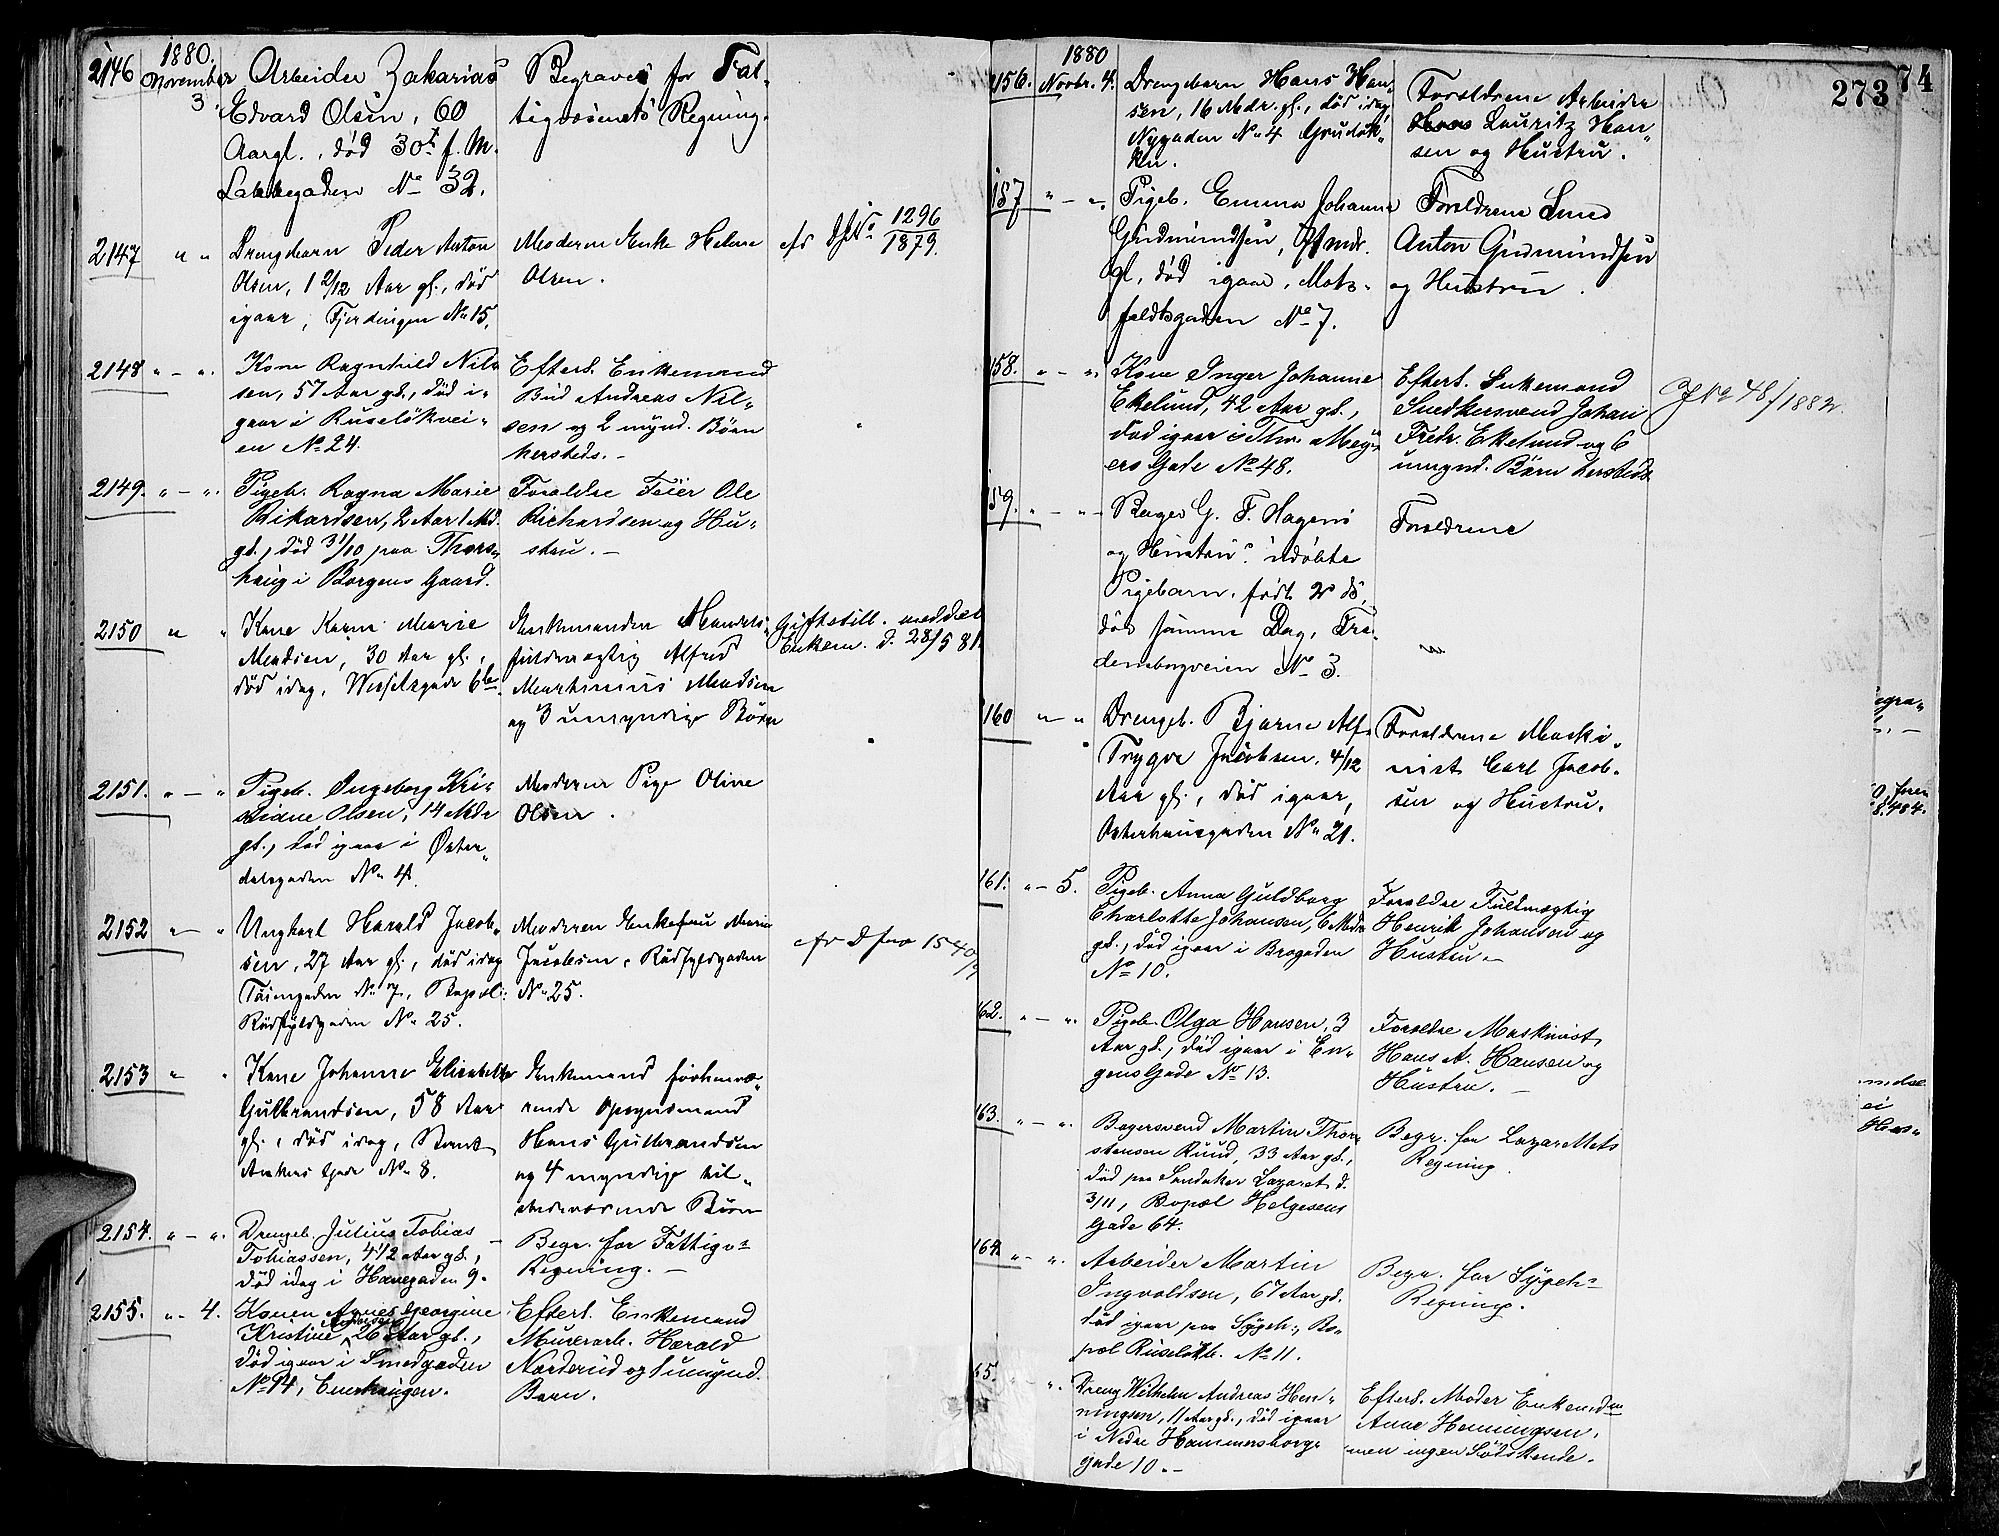 1880.
2146 November 3. Arbeider Zakarias
Edvard Olsen, 60
Aar gl., død 30te f. M.
Lakkegaden No 32.
Begraves for Fat-
tigvæsenets Regning.
2147 " " Drengebarn Peder Anton
Olsen, 1 2/12 Aar gl., død
igaar, Fjerdingen No 15.
Moderen Enke Helene
Olsen.
cfr DfNo 1296/1879.
2148 " - ". Kone Ragnhild Nil-
sen, 57 Aar gl., død i-
gaar i Ruseløkvei-
en No 24.
Efterl. Enkemand
Bud Andreas Nil-
sen og 2 mynd. Børn
hersteds. -
2149. " - ". Pigeb. Ragna Marie
Rikardsen, 2 Aar 1 Md.
gl., død 31/10 paa Thors-
haug i Borgens Gaard.
Forældre Feier Ole
Richardsen og Hu-
stru. -
2150 " " Kone Karen Marie
Madsen, 30 Aar gl.,
død idag, Wesselsgade 6
Enkemanden Handels-
fuldmægtig Alfred
Martinius Madsen
og 3 umyndige Børn
Giftstill. meddelt
Enkem. d. 28/5 81.
2151. " - " Pigeb. Ingeborg Kri-
stiane Olsen, 14 Mdr
gl., død igaar i Øster-
dalsgaden No 4.
Moderen Pige Oline
Olsen.
2152 " - " Ungkarl Harald Jacob-
sen, 27 Aar gl., død idag
No 7, Bopæl:
Rødfyldgaden No 25.
Moderen Enkefru Marie
Jacobsen, Rødfyldgaden
No 25.
cfr Dfno 1540/
2153 " " Kone Johanne Elisabeth
Gulbrandsen, 58 Aar
gl., død idag, Bernt
Ankers Gade No 8.
Enkemand forhenvæ-
rende Opsynsmand
Hans Gulbrandsen
og 4 myndige til-
stedeværende Børn
2154. " - ". Drengeb. Julius Tobias
Tobiassen, 4 1/2 Aar gl.,
død idag i Havegaden 9.
Begr. for Fattigv=
Regning. -
2155. " - 4. Konen Agnes Georgine
Kristine 26 Aar gl.,
død igaar i Smedgaden
No 94, Enerhaugen.
Efterl. Enkemand
Murerarb. Harald
Norderud og 1 umynd.
Barn.
1880
156. Novbr. 4. Drengebarn Hans Han-
sen, 16 Mdr. gl., død idag
Nygaden No 4 Grüdløk-
ken.
Forældrene Arbeider
Hans Lauritz Han-
sen og Hustru.
157 " - ". Pigeb. Emma Johanne
Gudmundsen, 9 mdr.
gl., død igaar, Motz-
feldtsgaden No 7.
Forældrene Smed
Anton Gudmundsen
og Hustru.
158. " - ". Kone Inger Johanne
Ekelund, 42 Aar gl.,
død igaar i Thv. Mey-
ers Gade No 48.
Efterl. Enkemand
Snedkersvend Johan
Fredr. Ekelund og 6
umynd. Børn hersteds.
JNo 48/1882.
159. " - " Bager G. F. Hagens
og Hustrus udøbte
Pigebarn, født 2 ds,
død samme Dag, Fre-
densborgveien No 3.
Forældrene
160 " " Drengeb. Bjarne Alf
Trygve Jacobsen, 4/12
Aar gl., død igaar,
Osterhausgaden No 21.
Forældrene Maski-
nist Carl Jacob-
sen og Hustru.
161. " - 5. Pigeb. Anna Guldborg
Charlotte Johansen, 6 Mdr
gl., død igaar i Brogaden
No 10.
Forældre Fuldmægtig
Henrik Johansen og
Hustru. -
162. " - ". Pigeb. Olga Hansen, 3
Aar gl., død igaar i En-
gens Gade No 13.
Forældre Maskinist
Hans A. Hansen og
Hustru. -
163. " - ". Bagersvend Martin Thor-
stensen Ruud, 33 Aar gl.,
død paa Sandaker Lazaret d.
3/11, Bopæl Helgesens
Gade 64.
Begr. for Lazarettets
Regning.
164. " - ". Arbeider Martin
Ingvaldsen, 67 Aar gl.
død igaar paa Sygeh., Bo-
pæl Ruseløkb. No 11.
Begr. for Sygeh=
Regning.
65. ". Dreng Wilhelm Andreas Hen-
ningsen, 11 Aar gl., død igaar
i Nedre Hammersborg-
gade 10. -
Efterl. Moder Enkemdm
Anne Henningsen,
men ingen Sødskende.
273
74